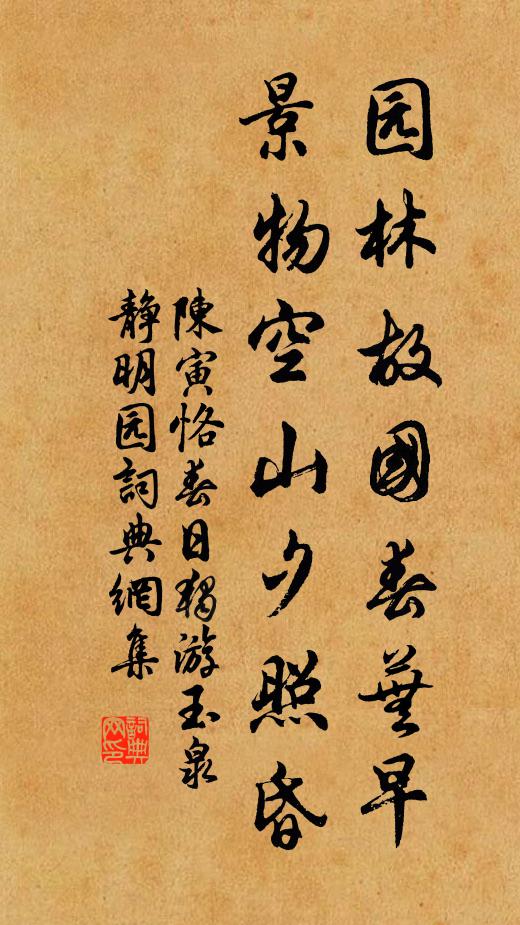 园林故國春蕪早
景物空山夕照昏
陳寅恪春日獨游玉泉
静明园詞典網集
詞典网印